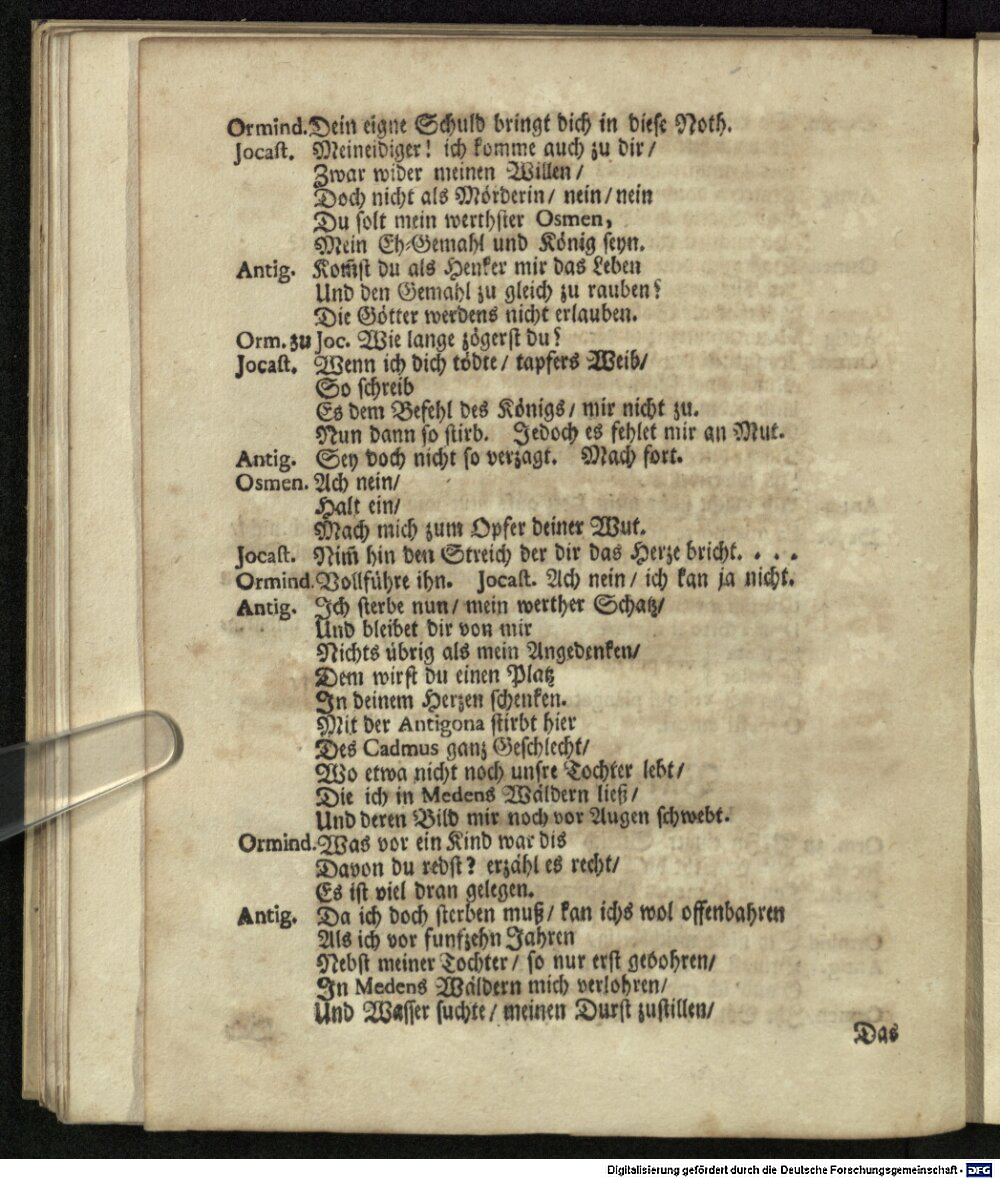 Ormind. Dein eigne Schuld bringt dich in diese Noth.
Jocast. Meineidiger! ich komme auch zu dir/
Zwar wider meinen Willen/
Doch nicht als Mörderin/ nein/ nein
Du solt mein werthster Osmen,
Mein Eh-Gemahl und König seyn.
Antig. Kom̃st du als Henker mir das Leben
Und den Gemahl zu gleich zu rauben?
Die Götter werdens nicht erlauben.
Orm. zu Joc. Wie lange zögerst du?
Jocast. Wenn ich dich tödte/ tapfers Weib/
So schreib
Es dem Befehl des Königs/ mir nicht zu.
Nun dann so stirb. Jedoch es fehlet mir an Mut.
Antig. Sey doch nicht so verzagt. Mach fort.
Osmen. Ach nein/
Halt ein/
Mach mich zum Opfer deiner Wut.
Jocast. Nim̃ hin den Streich der dir das Herze bricht. . . .
Ormind. Vollführe ihn. Jocast. Ach nein/ ich kan ja nicht.
Antig. Ich sterbe nun/ mein werther Schatz/
Und bleibet dir von mir
Nichts übrig als mein Angedenken/
Dem wirst du einen Platz
In deinem Herzen schenken.
Mit der Antigona stirbt hier
Des Cadmus ganz Geschlecht/
Wo etwa nicht noch unsre Tochter lebt/
Die ich in Medens Wäldern ließ/
Und deren Bild mir noch vor Augen schwebt.
Ormind. Was vor ein Kind war dis
Davon du redst? erzähl es recht/
Es ist viel dran gelegen.
Antig. Da ich doch sterben muß/ kan ichs wol offenbahren
Als ich vor funfzehn Jahren
Nebst meiner Tochter/ so nur erst gebohren/
In Medens Wäldern mich verlohren/
Und Wasser suchte/ meinen Durst zustillen/
Das
Digitalisierung gefördert durch die Deutsche Forschungsgemeinschaft - DFG